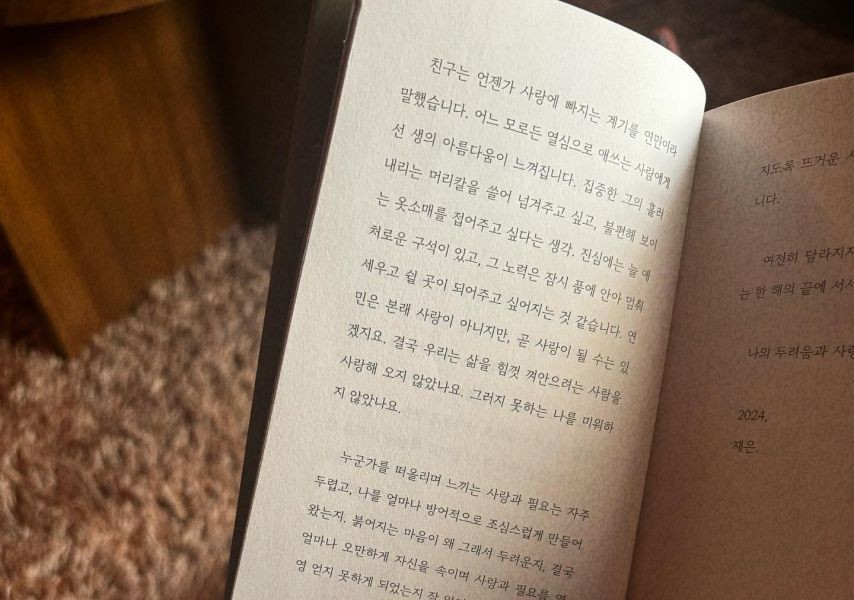 친구는 언젠가 사랑에 빠지는 계기를 연민이라
말했습니다. 어느 모로든 열심으로 애쓰는 사람에게
선 생의 아름다움이 느껴집니다. 집중한 그의 흘러
내리는 머리칼을 쓸어 넘겨주고 싶고, 불편해 보이
는 옷소매를 접어주고 싶다는 생각. 진심에는 늘 애
처로운 구석이 있고, 그 노력은 잠시 품에 안아 멈춰
세우고 쉴 곳이 되어주고 싶어지는 것 같습니다. 연
민은 본래 사랑이 아니지만, 곧 사랑이 될 수는 있
겠지요. 결국 우리는 삶을 힘껏 껴안으려는 사람을
사랑해 오지 않았나요. 그러지 못하는 나를 미워하
지 않았나요.
누군가를 떠올리며 느끼는 사랑과 필요는 자주
두렵고, 나를 얼마나 방어적으로 조심스럽게 만들어
왔는지. 붉어지는 마음이 왜 그래서 두려운지, 결국
얼마나 오만하게 자신을 속이며 사랑과 필요를 영
영 얻지 못하게 되었는지 잘
지도록 뜨거운
니다.
여전히 달라지지
는 한 해의 끝에 서서
나의 두려움과
2024,
재은.